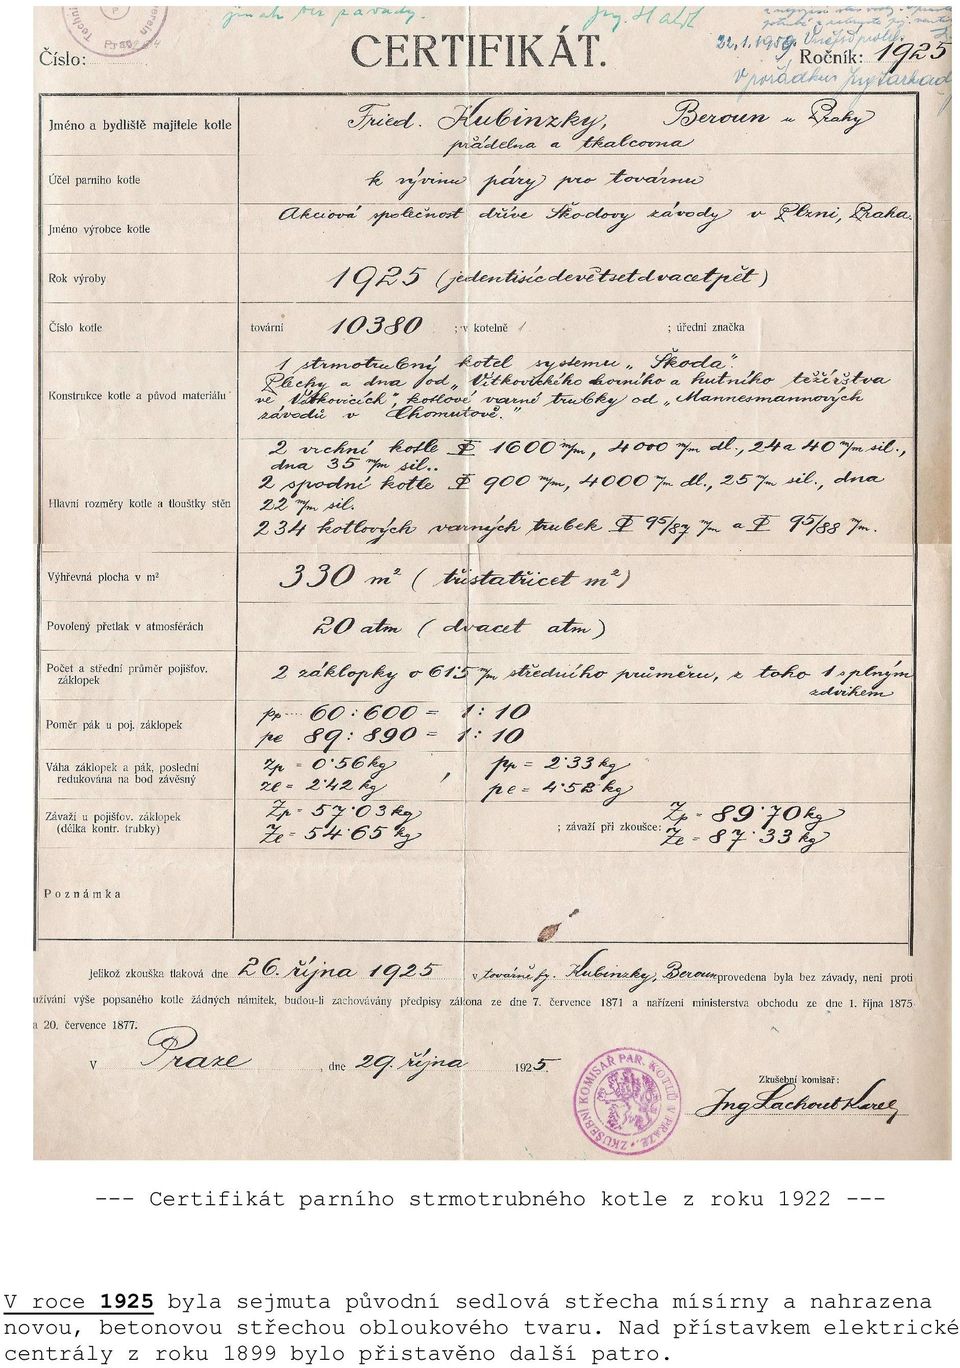 jinak bez závady.
22.1.1959.
Číslo:
CERTIFIKÁT.
Ročník: 1925
Jméno a bydliště majitele kotle
Fried. Kubinzky, Beroun u Prahy
přádelna a tkalcovna
Účel parního kotle
k vývinu páry pro továrnu
Jméno výrobce kotle
Akciová společnost dříve Škodovy závody v Plzni, Praha.
Rok výroby
1925 (jedentisícdevětsetdvacetpět)
Číslo kotle
tovární 10380 ; v kotelně ; úřední značka
Konstrukce kotle a původ materiálu
1 strmotrubný kotel systemu „Škoda".
Plechy a dna od „Vítkovického horního a hutního težířstva
ve Vítkovicích", kotlové varné trubky od „Mannesmannových
závodů v Chomutově."
Hlavní rozměry kotle a tloušťky stěn
2 vrchní kotle 1600 m/m, 4000 m/m dl., 24 a 40 m/m sil.,
dna 35 m/m sil..
2 spodní kotle 900 m/m, 4000 m/m dl., 25 m/m sil., dna
22 m/m sil.
234 kotlových varných trubek 95/87 m/m a 95/88 m/m.
Výhřevná plocha v m²
330 m² (třistatřicet m²)
Povolený přetlak v atmosférách
20 atm (dvacet atm)
Počet a střední průměr pojišťov.
záklopek
2 záklopky o 61·5 m/m středního průměru, z toho 1 s plným
zdvihem
Poměr pák u poj. záklopek
pp 60 : 600 = 1 : 10
pe 89 : 890 = 1 : 10
Váha záklopek a pák, poslední
redukována na bod závěsný
Zp = 0·56 kg, pp = 2·33 kg
ze = 2·42 kg pe = 4·58 kg
Závaží u pojišťov. záklopek
(délka kontr. trubky)
Zp = 57·03 kg
Ze = 54·65 kg
; závaží při zkoušce:
Zp = 89·70 kg
Ze = 87·33 kg
Poznámka
jelikož zkouška tlaková dne 26. října 1925 v továrně fy. Kubinzky, Beroun provedena byla bez závady, není proti
užívání výše popsaného kotle žádných námitek, budou-li zachovávány předpisy zákona ze dne 7. července 1871 a nařízení ministerstva obchodu ze dne 1. října 1875
a 20. července 1877.
V Praze, dne 29. října 1925.
ZKUŠEBNÍ KOMISAŘ PAR. KOTLŮ V PRAZE
Zkušební komisař:
Ing Lachout Karel
--- Certifikát parního strmotrubného kotle z roku 1922 ---
V roce 1925 byla sejmuta původní sedlová střecha mísírny a nahrazena
novou, betonovou střechou obloukového tvaru. Nad přístavkem elektrické
centrály z roku 1899 bylo přistavěno další patro.